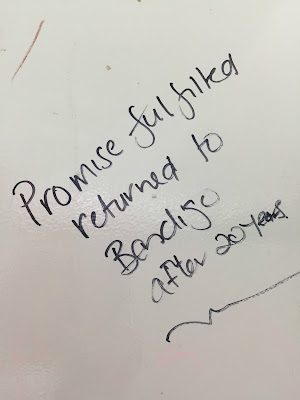 Promise fulfilled
returned to
Bendigo
after 20 years